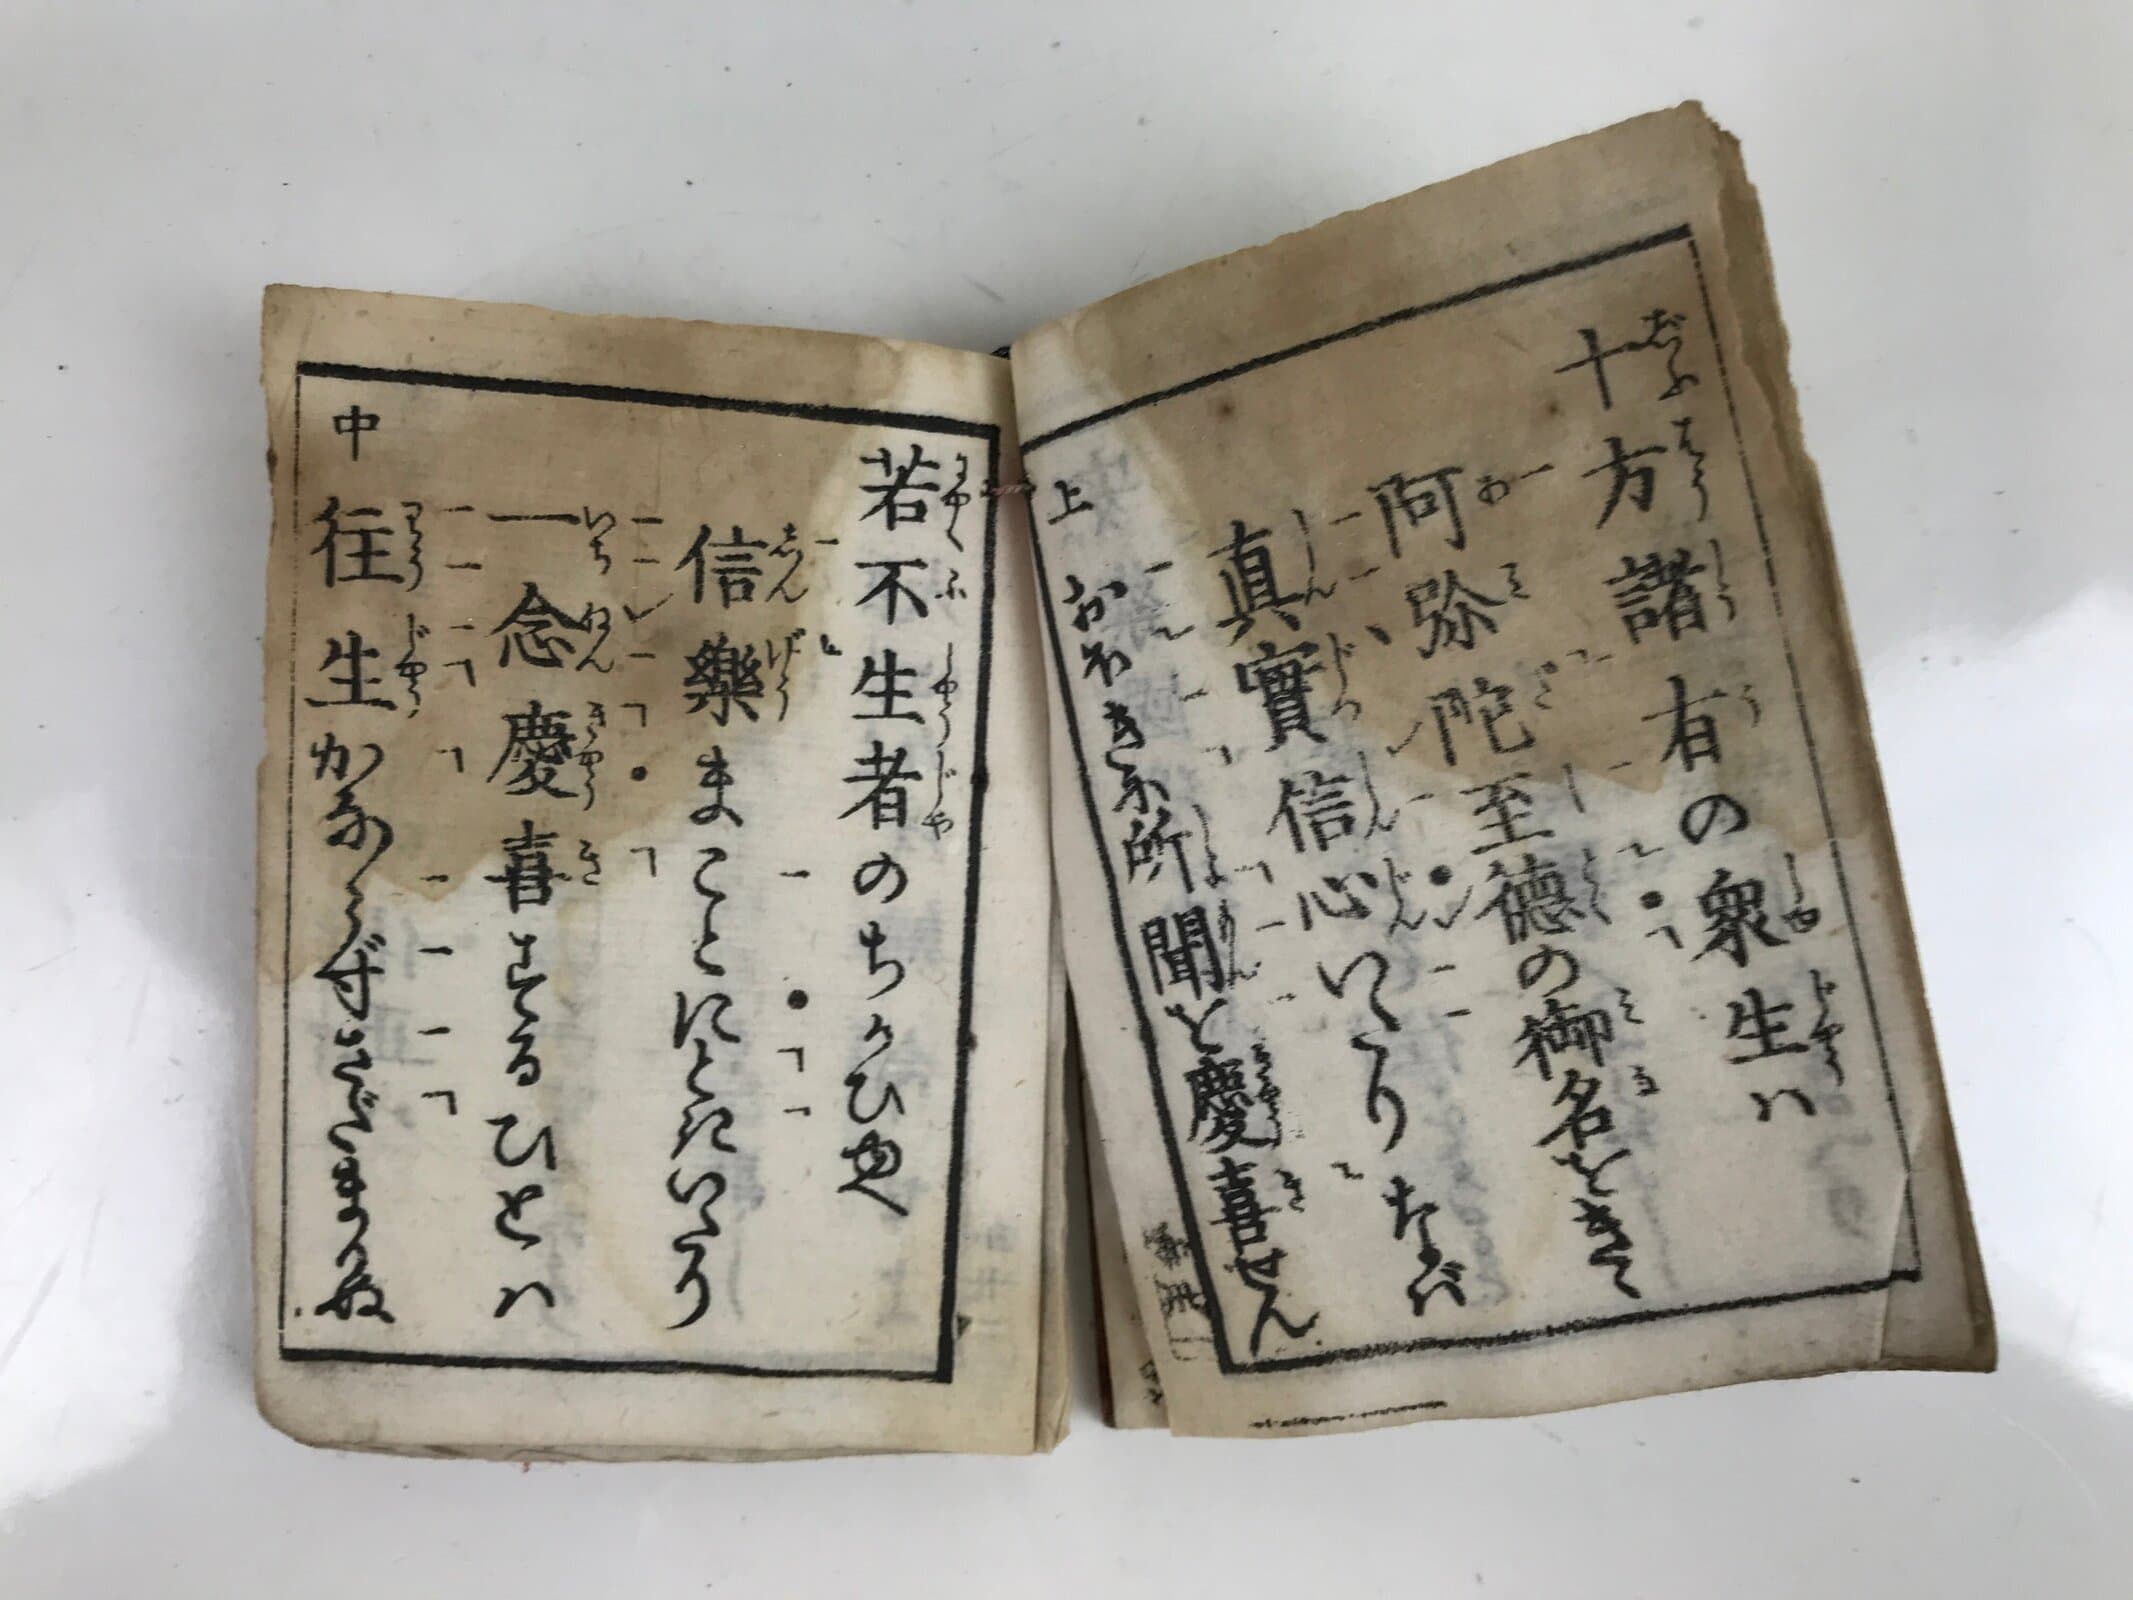 十方諸有の衆生ハ
阿弥陀至徳の御名をきゝ
真實信心いたりなバ
上 おほきに所聞を慶喜せん
若不生者のちかひゆへ
信樂まことにときいたり
一念慶喜するひとハ
中 往生かならずさだまりぬ